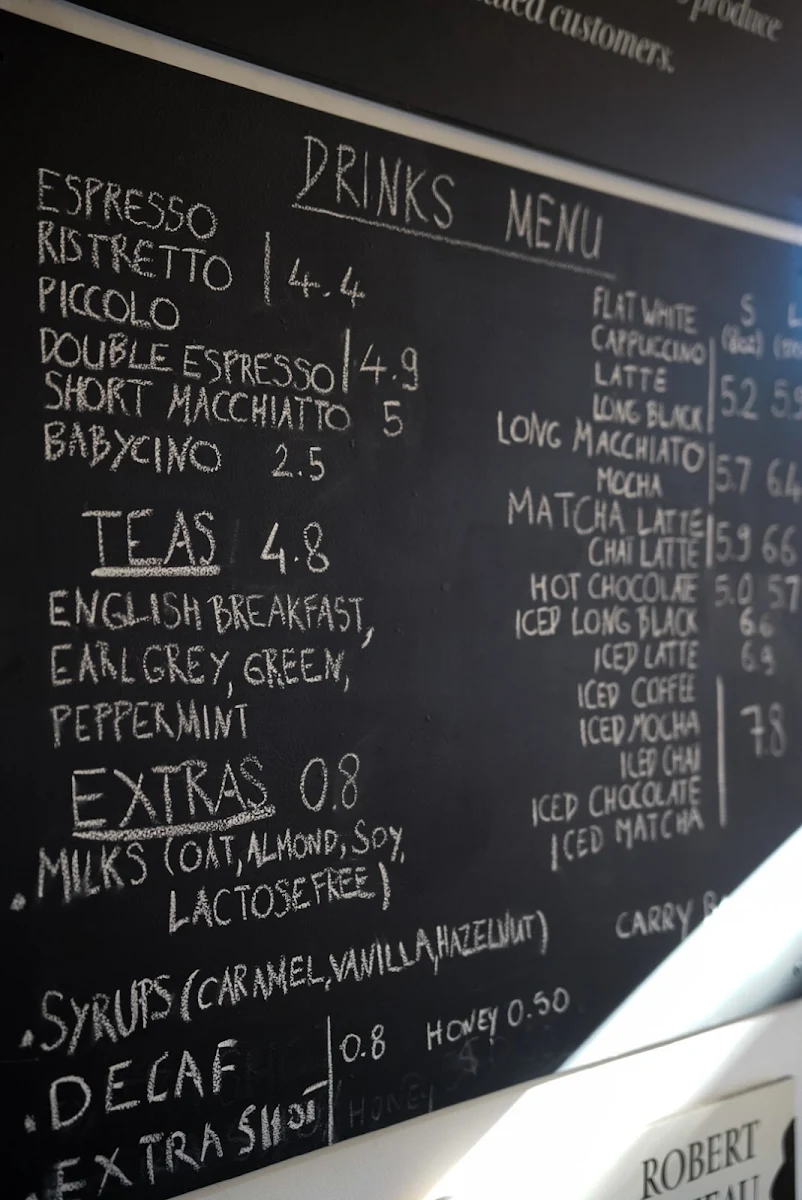 produce
customers.
DRINKS MENU
ESPRESSO
RISTRETTO 4.4
PICCOLO
DOUBLE ESPRESSO 4.9
SHORT MACCHIATTO 5
BABYCINO 2.5
TEAS 4.8
ENGLISH BREAKFAST,
EARL GREY, GREEN,
PEPPERMINT
EXTRAS 0.8
. MILKS (OAT, ALMOND, SOY,
LACTOSE FREE)
. SYRUPS (CARAMEL, VANILLA, HAZELNUT)
. DECAF 0.8
. EXTRA SHOT
HONEY 0.50
HONEY
FLAT WHITE S L
CAPPUCCINO (8oz)
LATTE
LONG BLACK 5.2
LONG MACCHIATO
MOCHA 5.7 6.4
MATCHA LATTE
CHAI LATTE 5.9 66
HOT CHOCOLATE 5.0 57
ICED LONG BLACK 6.6
ICED LATTE 6.9
ICED COFFEE
ICED MOCHA 7.8
ICED CHAI
ICED CHOCOLATE
ICED MATCHA
CARRY
ROBERT